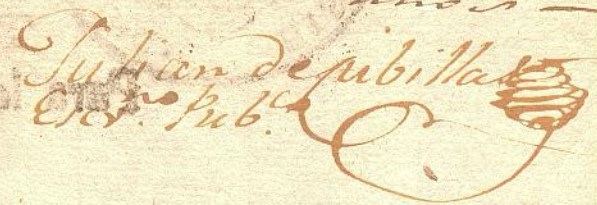 Julian de pibilla
Escr.no Pub.co